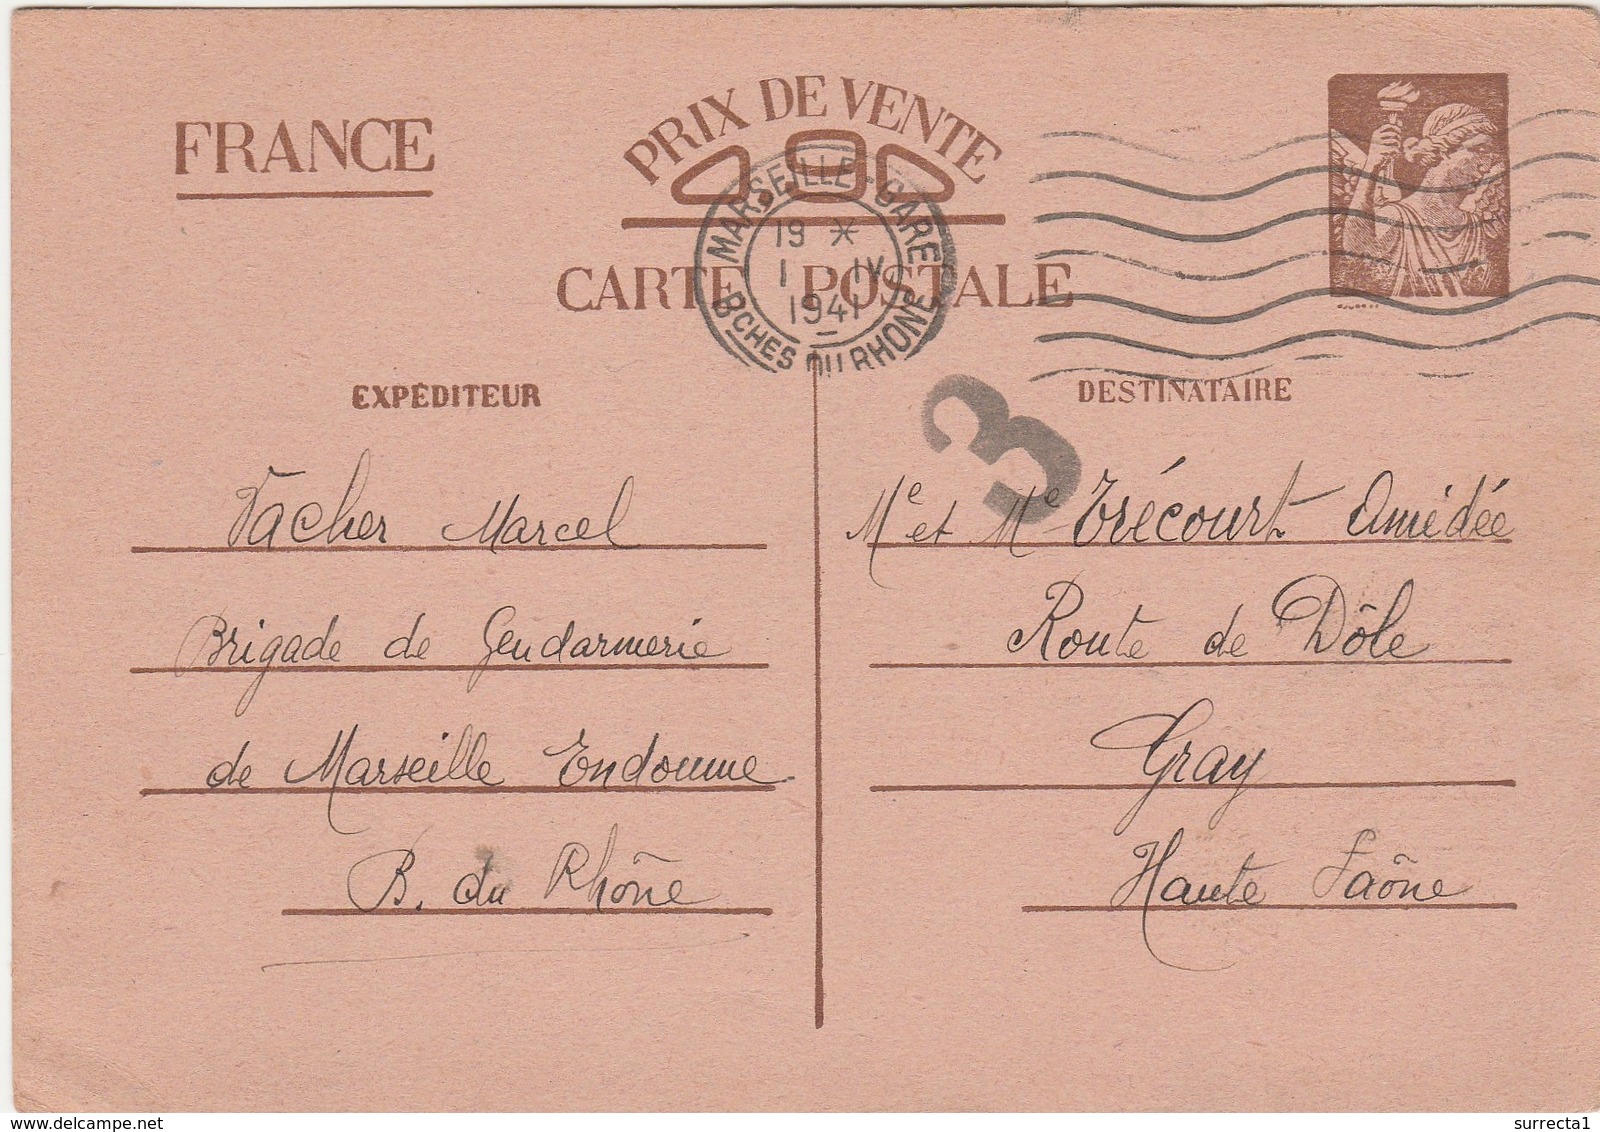 FRANCE
PRIX DE VENTE
CARTE POSTALE
MARSEILLE-GARE
19 *
1 IV
1941
BCHES DU RHONE
EXPÉDITEUR
Vacher Marcel
Brigade de Gendarmerie
de Marseille Endoume
B. du Rhône
3
DESTINATAIRE
Me et Me Trécourt Amédée
Route de Dôle
Gray
Haute Saône
delcampe.net
surrecta1